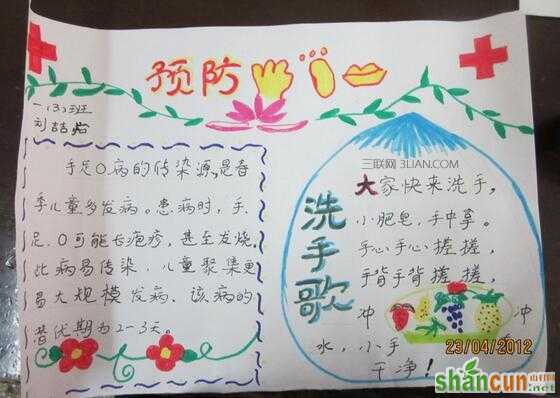 预防
一(3)班
刘喆
手足O病的传染源,是春
季儿童多发病。患病时,手、
足、O可能长疱疹,甚至发烧,
此病易传染,儿童聚集更
易大规模发病。该病的
潜伏期为2-3天。
三联网 3LIAN.COM
洗手歌
大家快来洗手,
小肥皂,手中拿。
手心手心搓搓,
手背手背搓搓,
冲
水,小手
干净!
23/04/2012
shancun
山村网